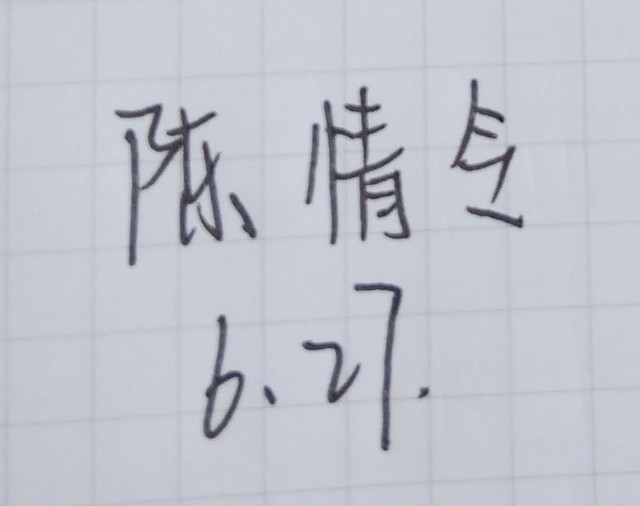 陈情令
6.27.